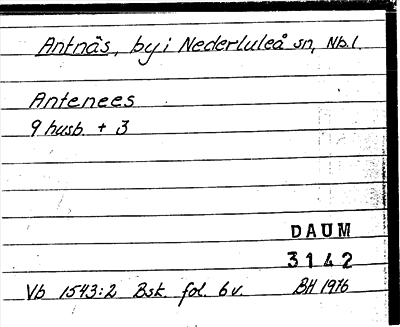 Antnäs, by i Nederluleå sn, Nb.l.
Antenees
9 husb. + 3
DAUM
3142
Vb 1543:2 Bsk. fol. 6v. BH 1976